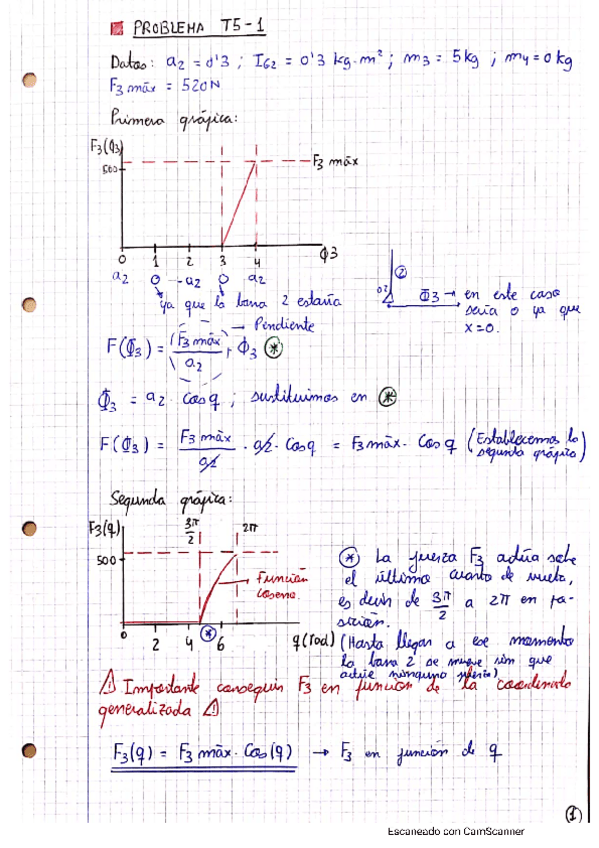 PROBLEMA T5-1
Datos: a2 = 0'3 ; IG2 = 0'3 kg·m² ; m3 = 5kg ; m4 = 0 kg
F3 máx = 520N
Primera gráfica:
F3(Φ3)
500
F3 máx
0 1 2 3 4 Φ3
a2 0 -a2 0 a2
ya que la barra 2 estaría
02
2
Φ3 → en este caso
sería 0 ya que
x=0.
→ Pendiente
F(Φ3) = (F3 máx / a2) · Φ3 *
Φ3 = a2 · cosq ; sustituimos en *
F(Φ3) = F3 máx / a2 · a2 · Cosq = F3 máx · Cosq (Establecemos la
segunda gráfica)
Segunda gráfica:
F3(q)
3π/2
2π
500
Función
coseno.
0 2 4 * 6 q(rad)
* La fuerza F3 actúa sobre
el último cuarto de vuelta,
es decir de 3π/2 a 2π en po-
sición.
(Hasta llegar a ese momento
la barra 2 se mueve sin que
actúe ninguna fuerza)
⚠ Importante conseguir F3 en función de la coordenada
generalizada ⚠
F3(q) = F3 máx · Cos(q) → F3 en función de q
1
Escaneado con CamScanner